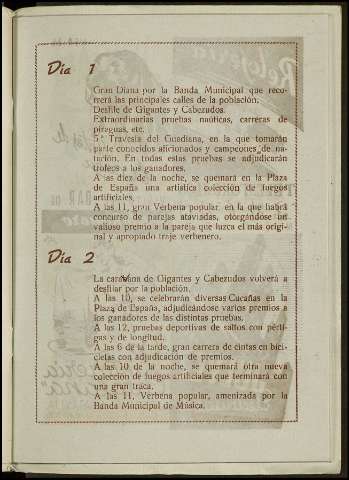 Día 1
Gran Diana por la Banda Municipal que reco-
rrerá las principales calles de la población.
Desfile de Gigantes y Cabezudos.
Extraordinarias pruebas naúticas, carreras de
piraguas, etc.
5.ª Travesía del Guadiana, en la que tomarán
parte conocidos aficionados y campeones de na-
tación. En todas estas pruebas se adjudicarán
trofeos a los ganadores.
A las diez de la noche, se quemará en la Plaza
de España una artística colección de fuegos
artificiales.
A las 11, gran Verbena popular, en la que habrá
concurso de parejas ataviadas, otorgándose un
valioso premio a la pareja que luzca el más origi-
nal y apropiado traje verbenero.
Día 2
La caravana de Gigantes y Cabezudos volverá a
desfilar por la población.
A las 10, se celebrarán diversas Cucañas en la
Plaza de España, adjudicándose varios premios a
los ganadores de las distintas pruebas.
A las 12, pruebas deportivas de saltos con pérti-
gas y de longitud.
A las 6 de la tarde, gran carrera de cintas en bici-
cletas con adjudicación de premios.
A las 10 de la noche, se quemará otra nueva
colección de fuegos artificiales que terminará con
una gran traca.
A las 11, Verbena popular, amenizada por la
Banda Municipal de Música.